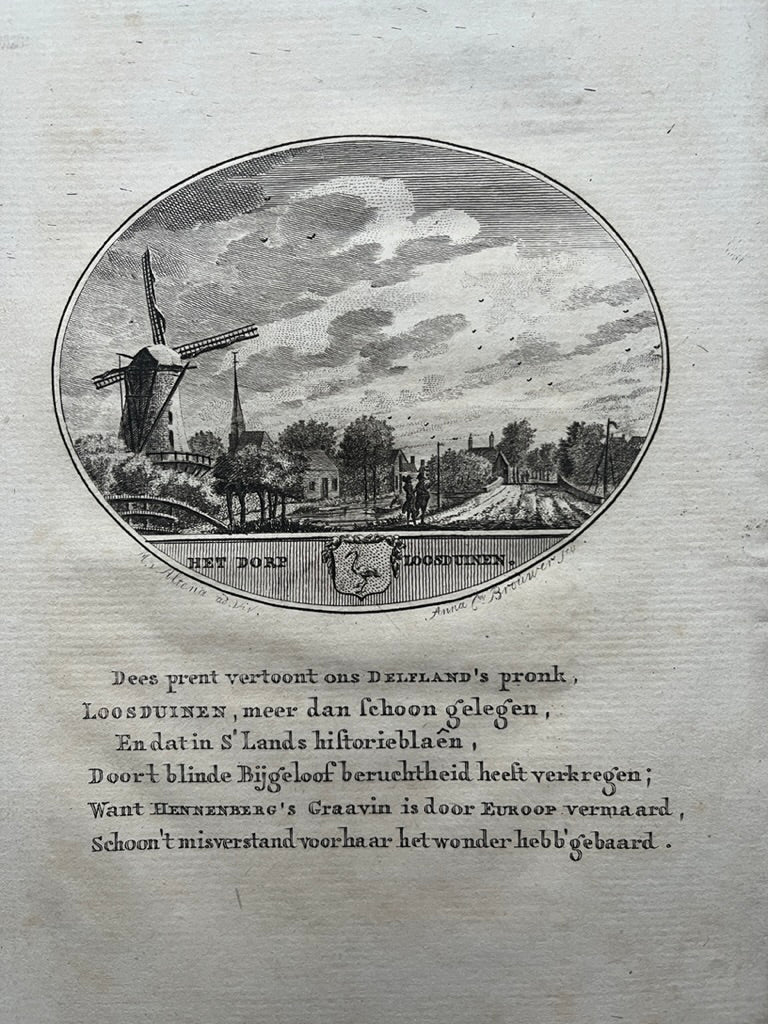 HET DORP LOOSDUINEN.
Altena ad. viv.
Anna C. Brouwer
Dees prent vertoont ons DELFLAND's pronk,
LOOSDUINEN, meer dan ſchoon gelegen,
En dat in S'Lands hiſtorieblaên,
Door't blinde Bijgeloof beruchtheid heeft verkregen;
Want HENNENBERG's Graavin is door EUROOP vermaard,
Schoon't misverstand voor haar het wonder hebb' gebaard.